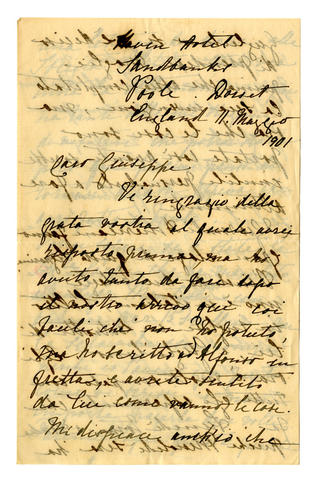 Haven Hotel
Sandbanks
Poole Dorset
England 11. Maggio
1901
Caro Giuseppe
Vi ringrazio della
grata vostra al quale avrei
risposto prima ma ho
avuto tanto da fare dopo
il nostro arrivo qui
che non ho potuto,
ma ho scritto ad Alfonso in
fretta, e avrete sentito
da lui come vanno le cose.
Mi dispiace che